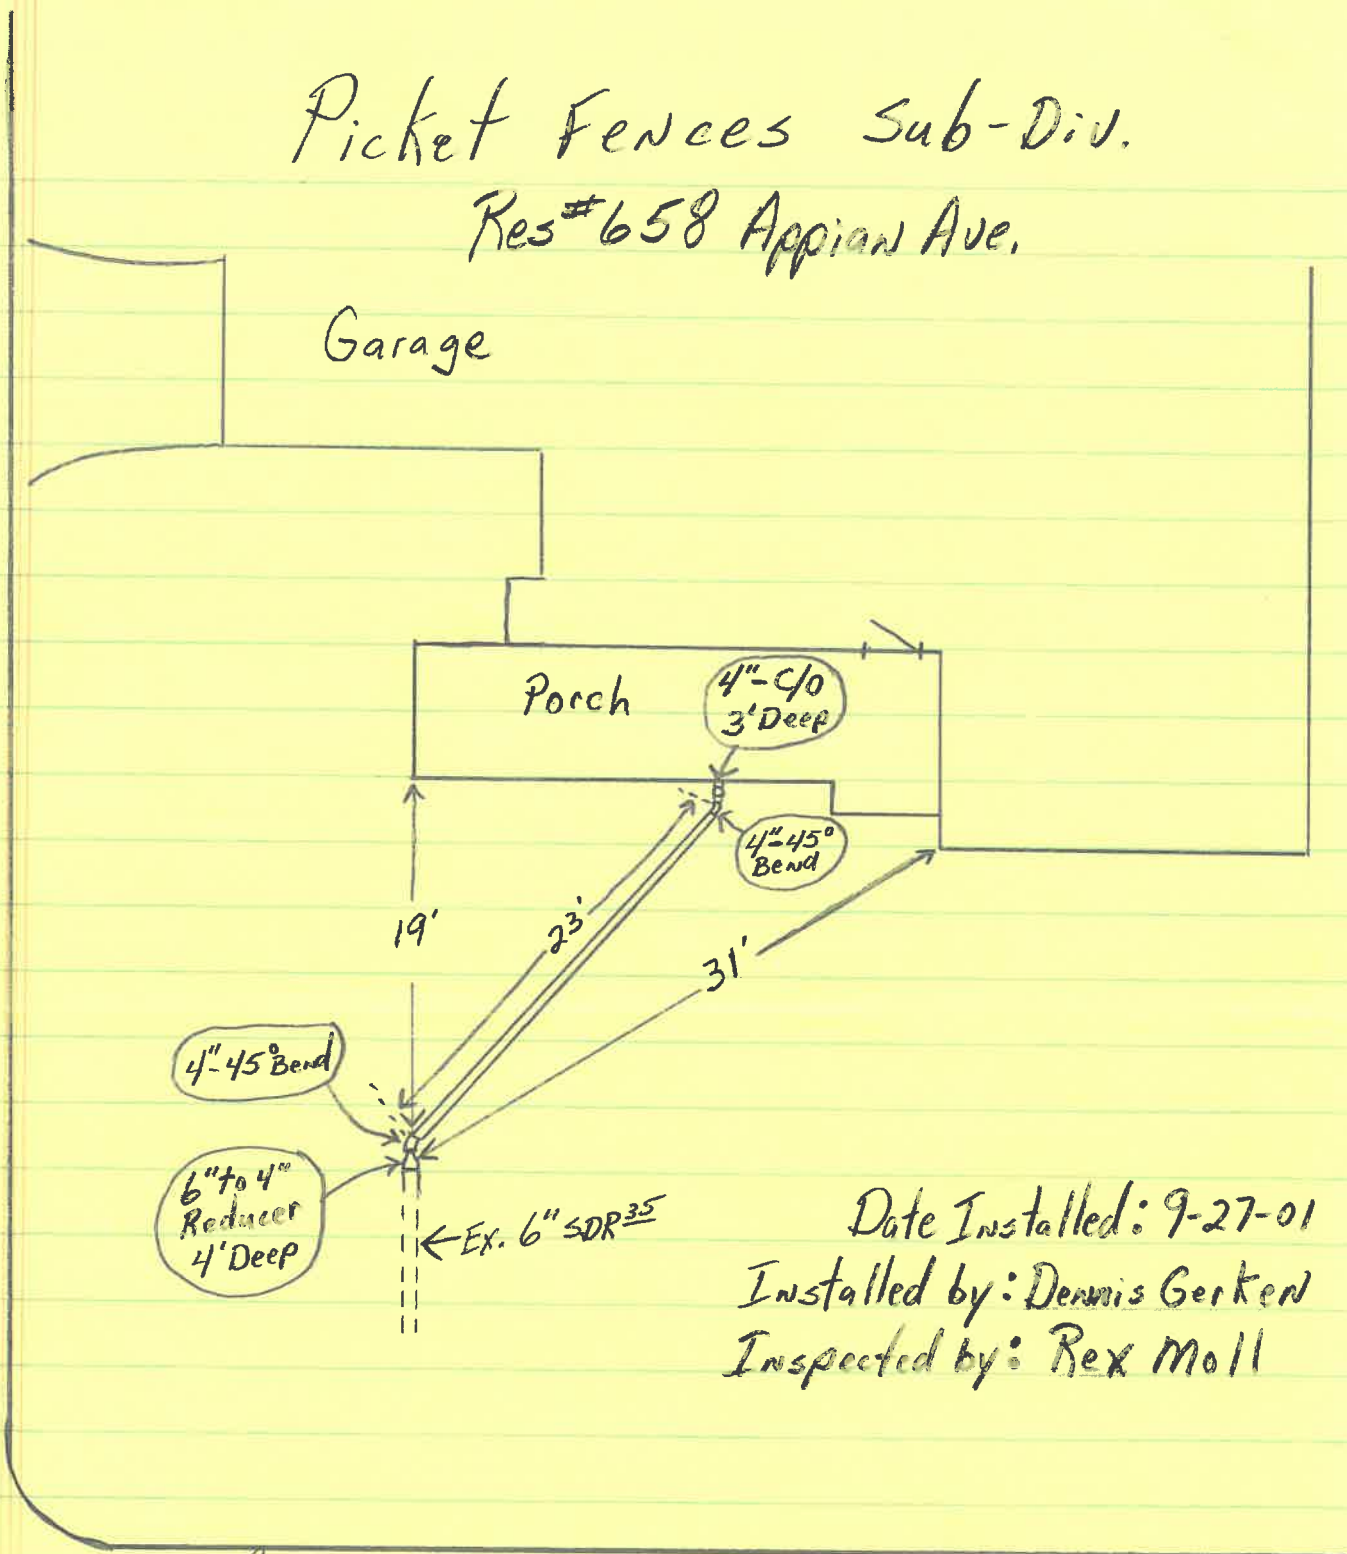 Picket Fences Sub-Div.
Res#658 Appian Ave.
Garage
Porch
4"-C/O
3' Deep
4"-45°
Bend
19'
23'
31'
4"-45° Bend
6" to 4"
Reducer
4' Deep
←Ex. 6" SDR 35
Date Installed: 9-27-01
Installed by: Dennis Gerken
Inspected by: Rex Moll